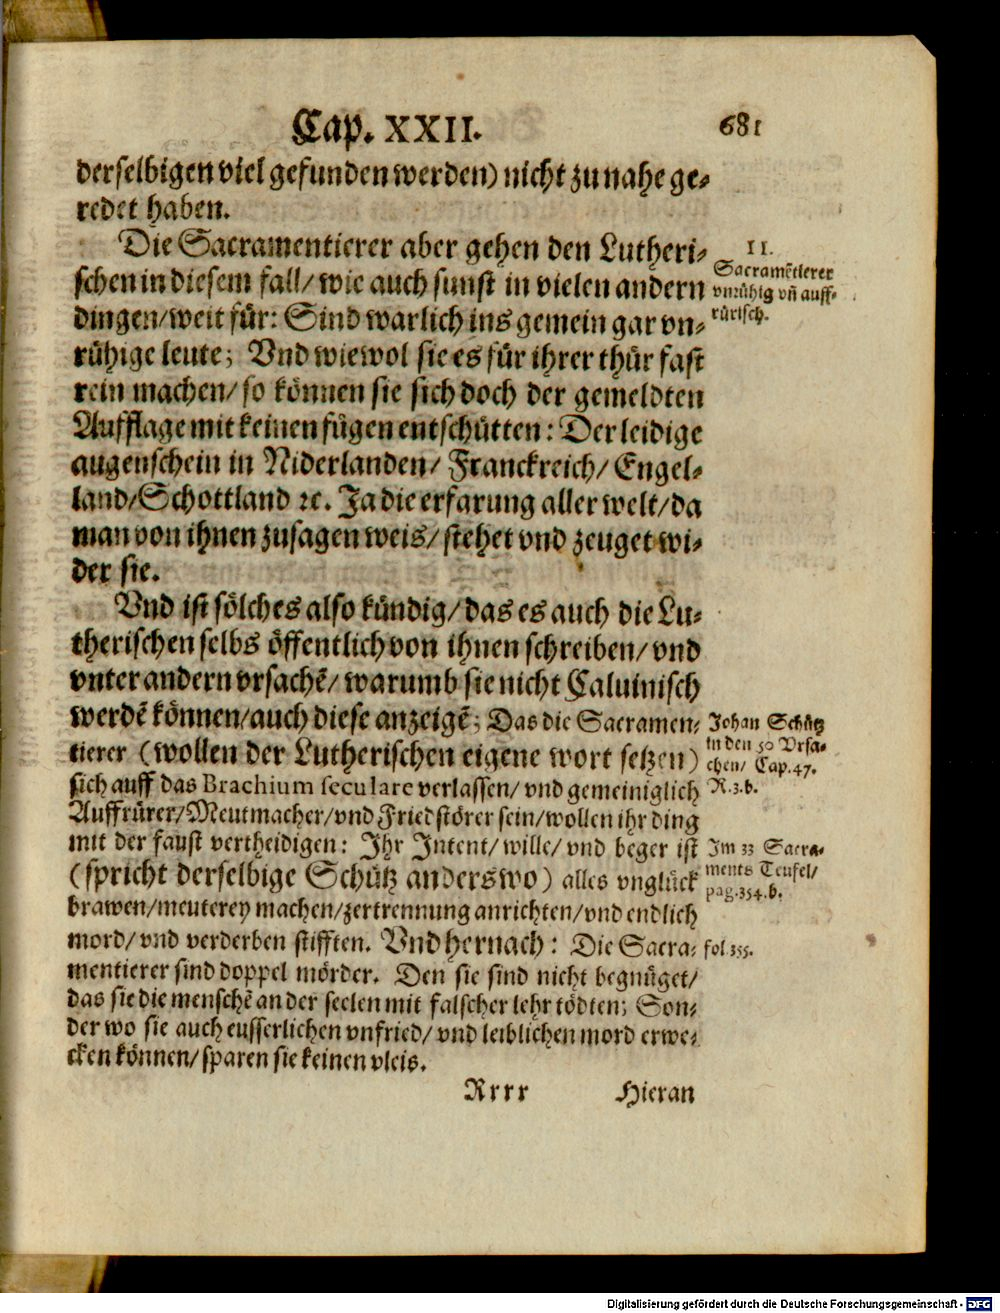 Cap. XXII. 681
derselbigen viel gefunden werden) nicht zu nahe ge-
redet haben.
Die Sacramentierer aber gehen den Lutheri-
schen in diesem fall/ wie auch sunst in vielen andern
dingen/ weit für: Sind warlich ins gemein gar vn-
rühige leute; Vnd wiewol sie es für ihrer thür fast
rein machen/ so können sie sich doch der gemeldten
Aufflage mit keinen fügen entschütten: Der leidige
augenschein in Niderlanden/ Franckreich/ Engel-
land/ Schottland ꝛc. Ja die erfarung aller welt/ da
man von ihnen zusagen weis/ stehet vnd zeuget wi-
der sie.
11.
Sacramētierer
vnrühig vn̄ auff-
rürisch.
Vnd ist sölches also kündig/ das es auch die Lu-
therischen selbs öffentlich von ihnen schreiben/ vnd
vnter andern vrsachē/ warumb sie nicht Caluinisch
werdē können/ auch diese anzeigē; Das die Sacramen-
tierer (wollen der Lutherischen eigene wort setzen)
sich auff das Brachium seculare verlassen/ vnd gemeiniglich
Auffrürer/ Meutmacher/ vnd Friedstörer sein/ wollen ihr ding
mit der faust vertheidigen: Ihr Intent/ wille/ vnd beger ist
(spricht derselbige Schütz anderswo) alles vnglück
brawen/ meuterey machen/ zertrennung anrichten/ vnd endlich
mord/ vnd verderben stifften. Vnd hernach: Die Sacra-
mentierer sind doppel mörder. Den sie sind nicht begnüget/
das sie die menschē an der seelen mit falscher lehr tödten; Son-
der wo sie auch eusserlichen vnfried/ vnd leiblichen mord erwe-
cken können/ sparen sie keinen vleis.
Johan Schütz
in den 50 Vrsa-
chen/ Cap. 47.
R. 3. b.
Im 33 Sacra-
ments Teufel/
pag. 354. b.
fol 355.
Rrrr Hieran
Digitalisierung gefördert durch die Deutsche Forschungsgemeinschaft - DFG